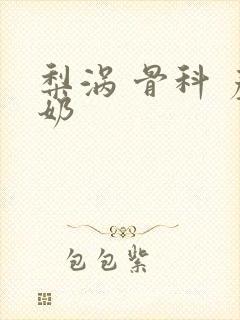 梨涡 骨科
奶
包包紫